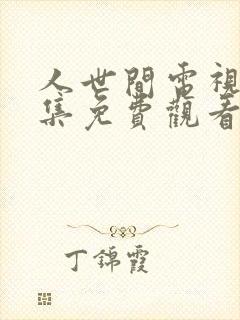 人世間電視
集免費觀看
丁錦霞